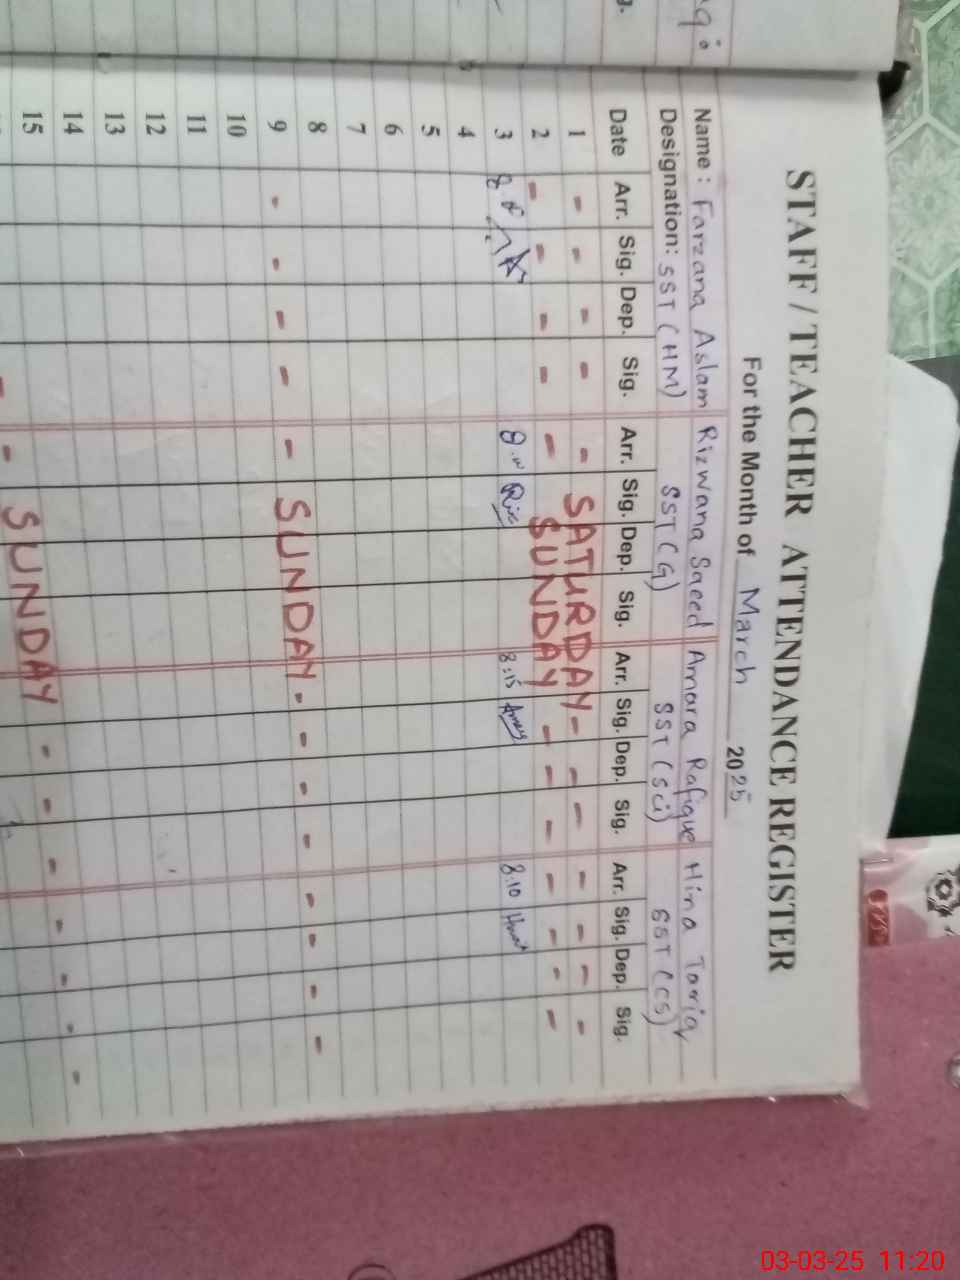 STAFF / TEACHER ATTENDANCE REGISTER
For the Month of March 2025
Name : Farzana Aslam Rizwana Saeed Amara Rafique Hina Tariq
Designation: SST (HM) SST (G) SST (Sci) SST (CS)
Date Arr. Sig. Dep. Sig. Arr. Sig. Dep. Sig. Arr. Sig. Dep. Sig. Arr. Sig. Dep. Sig.
1 - - - - - SATURDAY - - - - - - -
2 - - - - - SUNDAY - - - - - - -
3 8:15 8:10
4
5
6
7
8
9 - - - - - SUNDAY - - - - - - - -
10
11
12
13
14
15
SUNDAY - - - - - - -
03-03-25 11:20